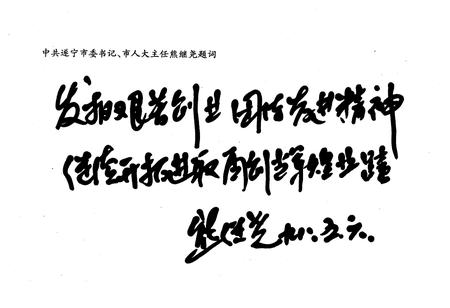 中共遂宁市委书记、市人大主任熊继尧题词
发扬艰苦创业 团结奋进精神
继续开拓进取 再创辉煌业绩
熊继尧 九八.五.六.